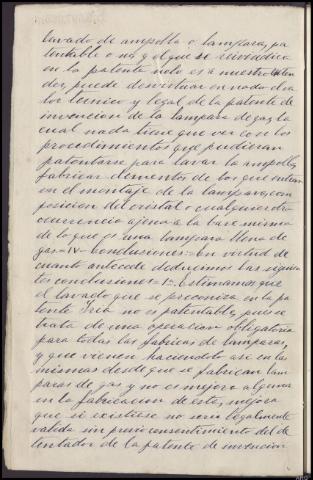 lavado de ampolla o lampara, pa
tentable o no, y el que se reivindica
en la patente nulo es a nuestro enten
der, puede desvirtuar en nada el va
lor tecnico y legal de la patente de
invencion de la lampara de gas, la
cual nada tiene que ver con los
procedimientos que pudieran
patentarse para lavar la ampolla,
fabricar elementos de los que entran
en el montaje de la lampara, com
posicion del cristal o cualquier otra
ocurrencia ajena a la base misma
de lo que es una lampara llena de
gas = IV = Conclusiones = En virtud de
cuanto antecede deducimos las siguien
tes conclusiones = 1ª Estimamos que
el lavado que se preconiza en la pa
tente Iria no es patentable, pues se
trata de una operacion obligatoria
para todas las fabricas de lamparas,
y que vienen haciendolo asi en las
mismas desde que se fabrican lam
paras de gas y no es mejora alguna
en la fabricacion de estas, mejora
que si existiese no seria legalmente
valida sin previo consentimiento del de
tentador de la patente de invencion